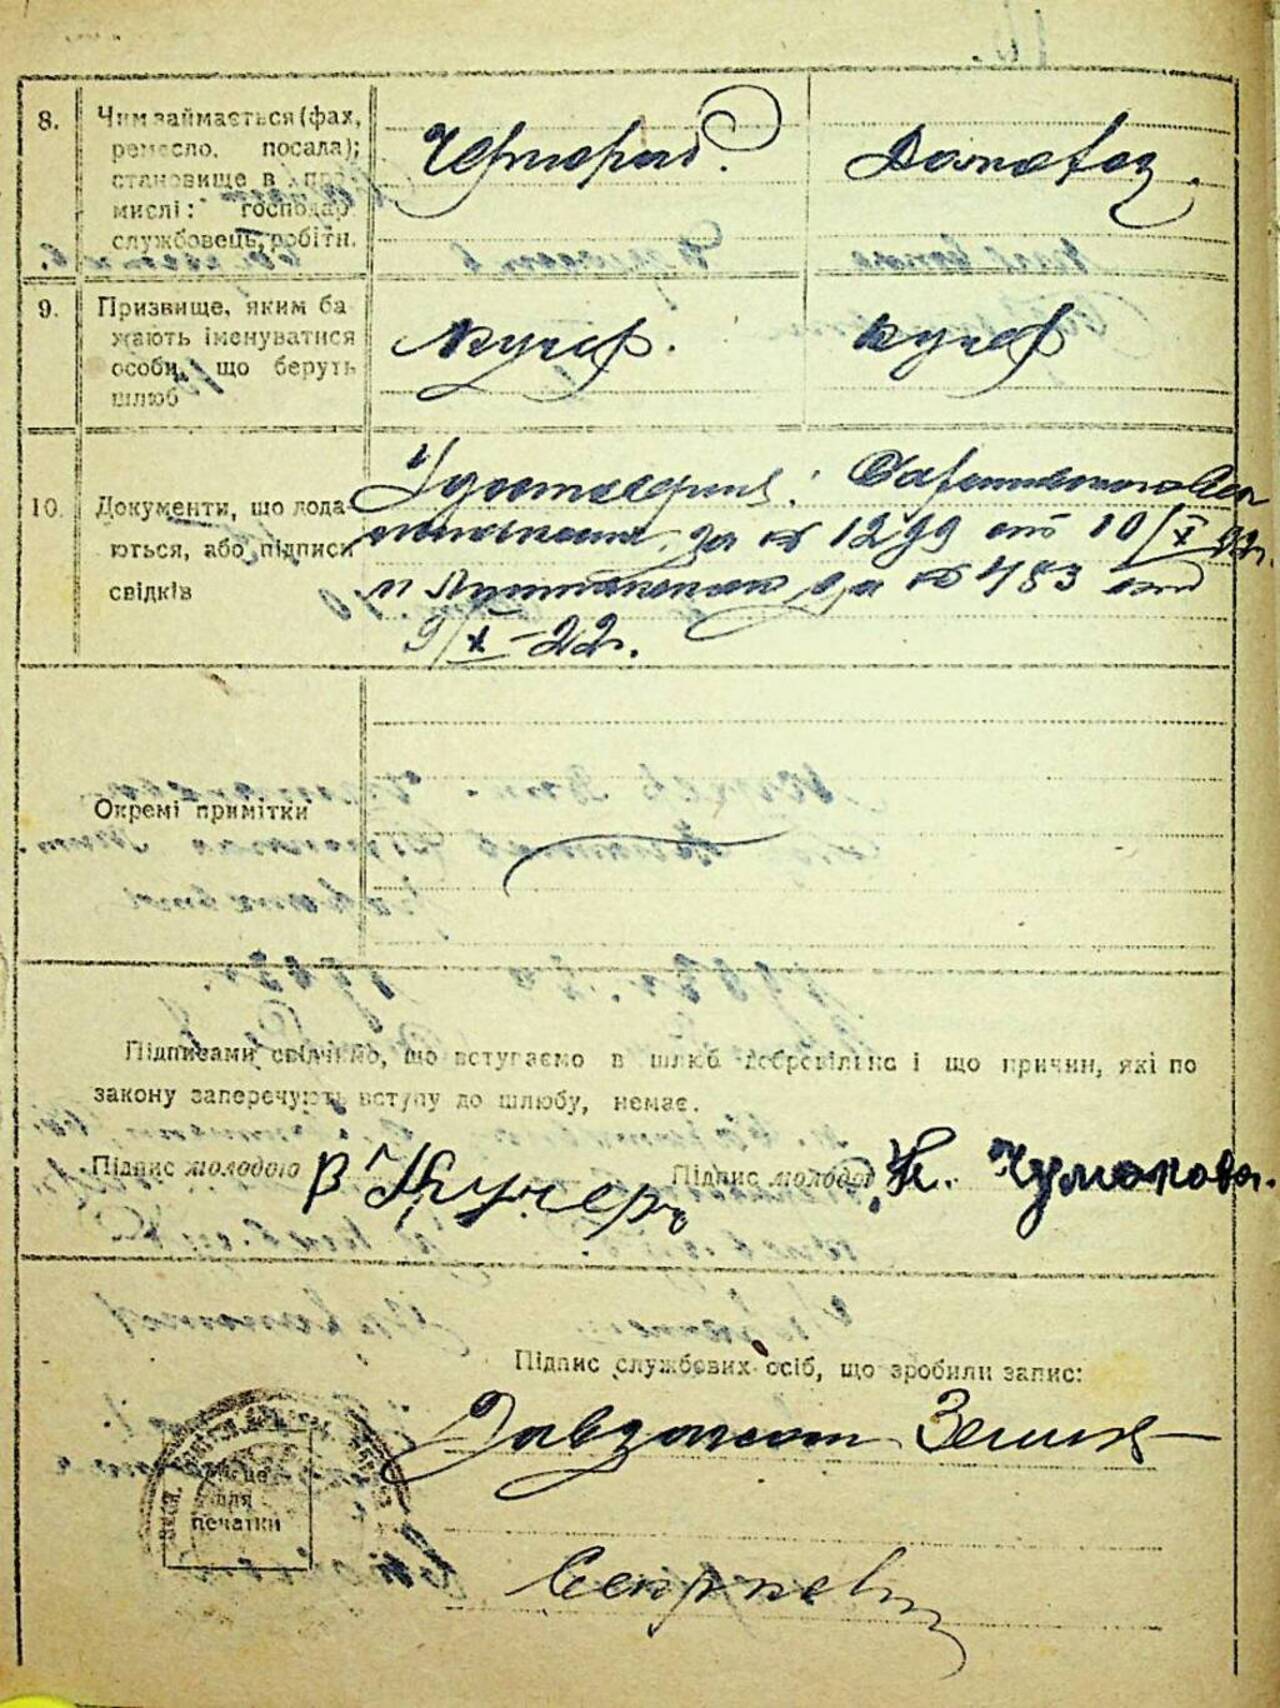 8.
Чим займається (фах,
ремесло, посада);
становище в про-
мислі: господар
службовець, робітн.
Чернораб.
Домохоз.
9.
Призвище, яким ба
жають іменуватися
особи, що беруть
шлюб
Кучер.
Кучер
10.
Документи, що пода-
ються, або підписи
свідків
за № 1299 от 10/X 22г.
и за № 483 от
9/X-22г.
Окремі примітки
Підписами свідчимо, що вступаємо в шлюб добровільно і що причин, які по
закону заперечують вступу до шлюбу, немає.
Підпис молодого В Кучеръ Підпис молодої К. Чумакова.
Підпис службових осіб, що зробили запис:
Завзагсом
Місце
для
печатки
Секретарь